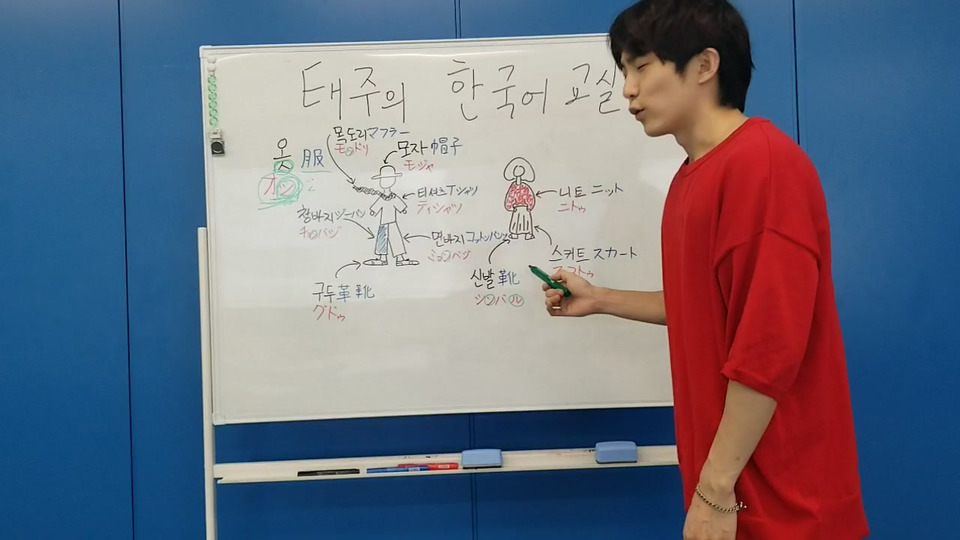 태주의 한국어 교실
옷 服
オッ
목도리 マフラー
モッドリ
모자 帽子
モジャ
티셔츠 Tシャツ
ティシャツ
청바지 ジーパン
면바지 コットンパンツ
구두 革靴
グドゥ
니트 ニット
ニトゥ
스커트 スカート
신발 靴
シンバル